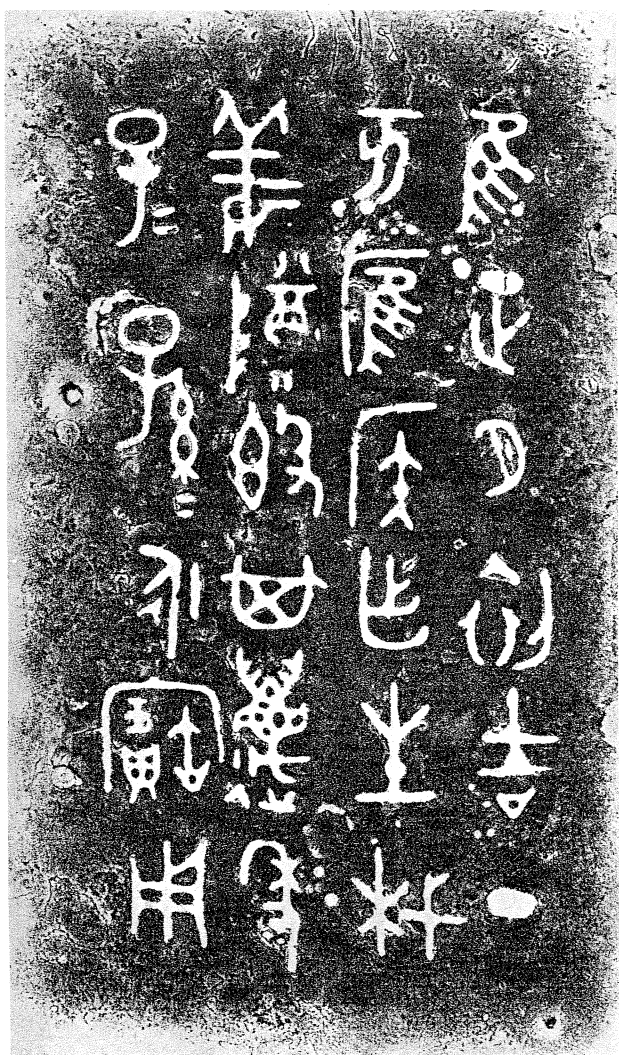 隹正月初吉丁
亥應侯乍生杙
姜尊簋其萬年
子=孫=永寶用